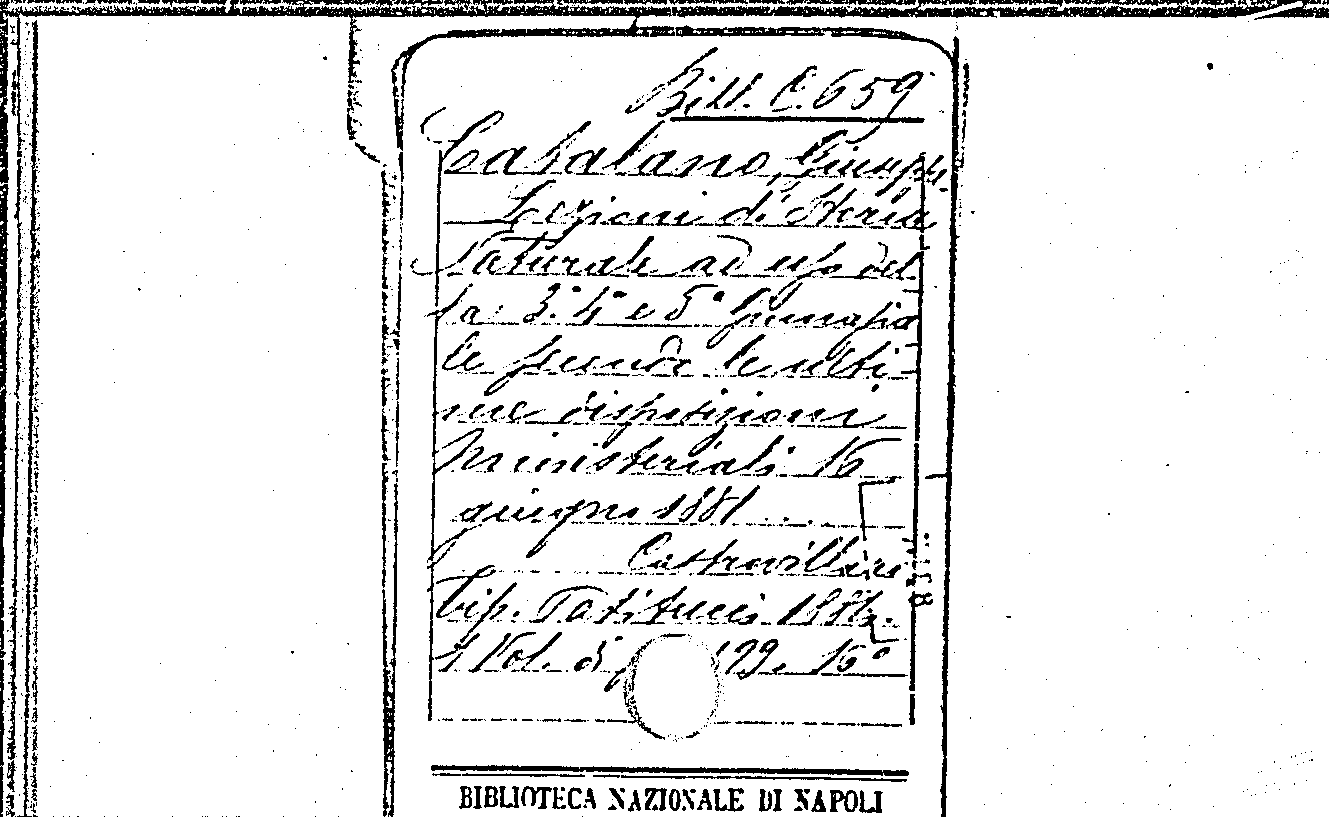 Bibl. C. 659
Catalano, Giuseppe
Lezioni di Storia
Naturale ad uso del
la 3ª 4ª e 5ª ginnasia
le secondo le ulti-
me disposizioni
Ministeriali 16
giugno 1881 ...
Castrovillari
Tip. Patitucci 1881.
1 Vol. di 129. 16°
BIBLIOTECA NAZIONALE DI NAPOLI